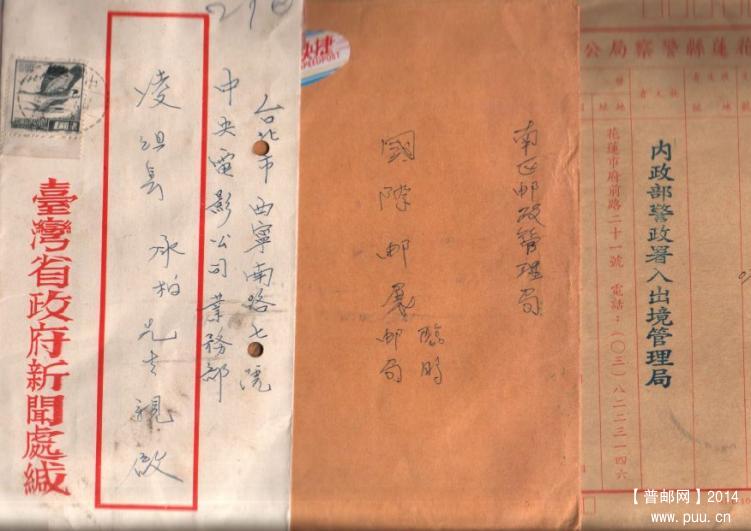 台北市西寧南路七號
中央電影公司業務部
凌組長 承柏兄 親啟
臺灣省政府新聞處緘
快捷
SPEEDPOST
南区邮政管理局
國際邮展臨時邮局
花蓮縣警察局公
內政部警政署入出境管理局
花蓮市府前路二十一號 電話：(〇三)八二二三一四六
【普邮网】2014
www.puu.cn